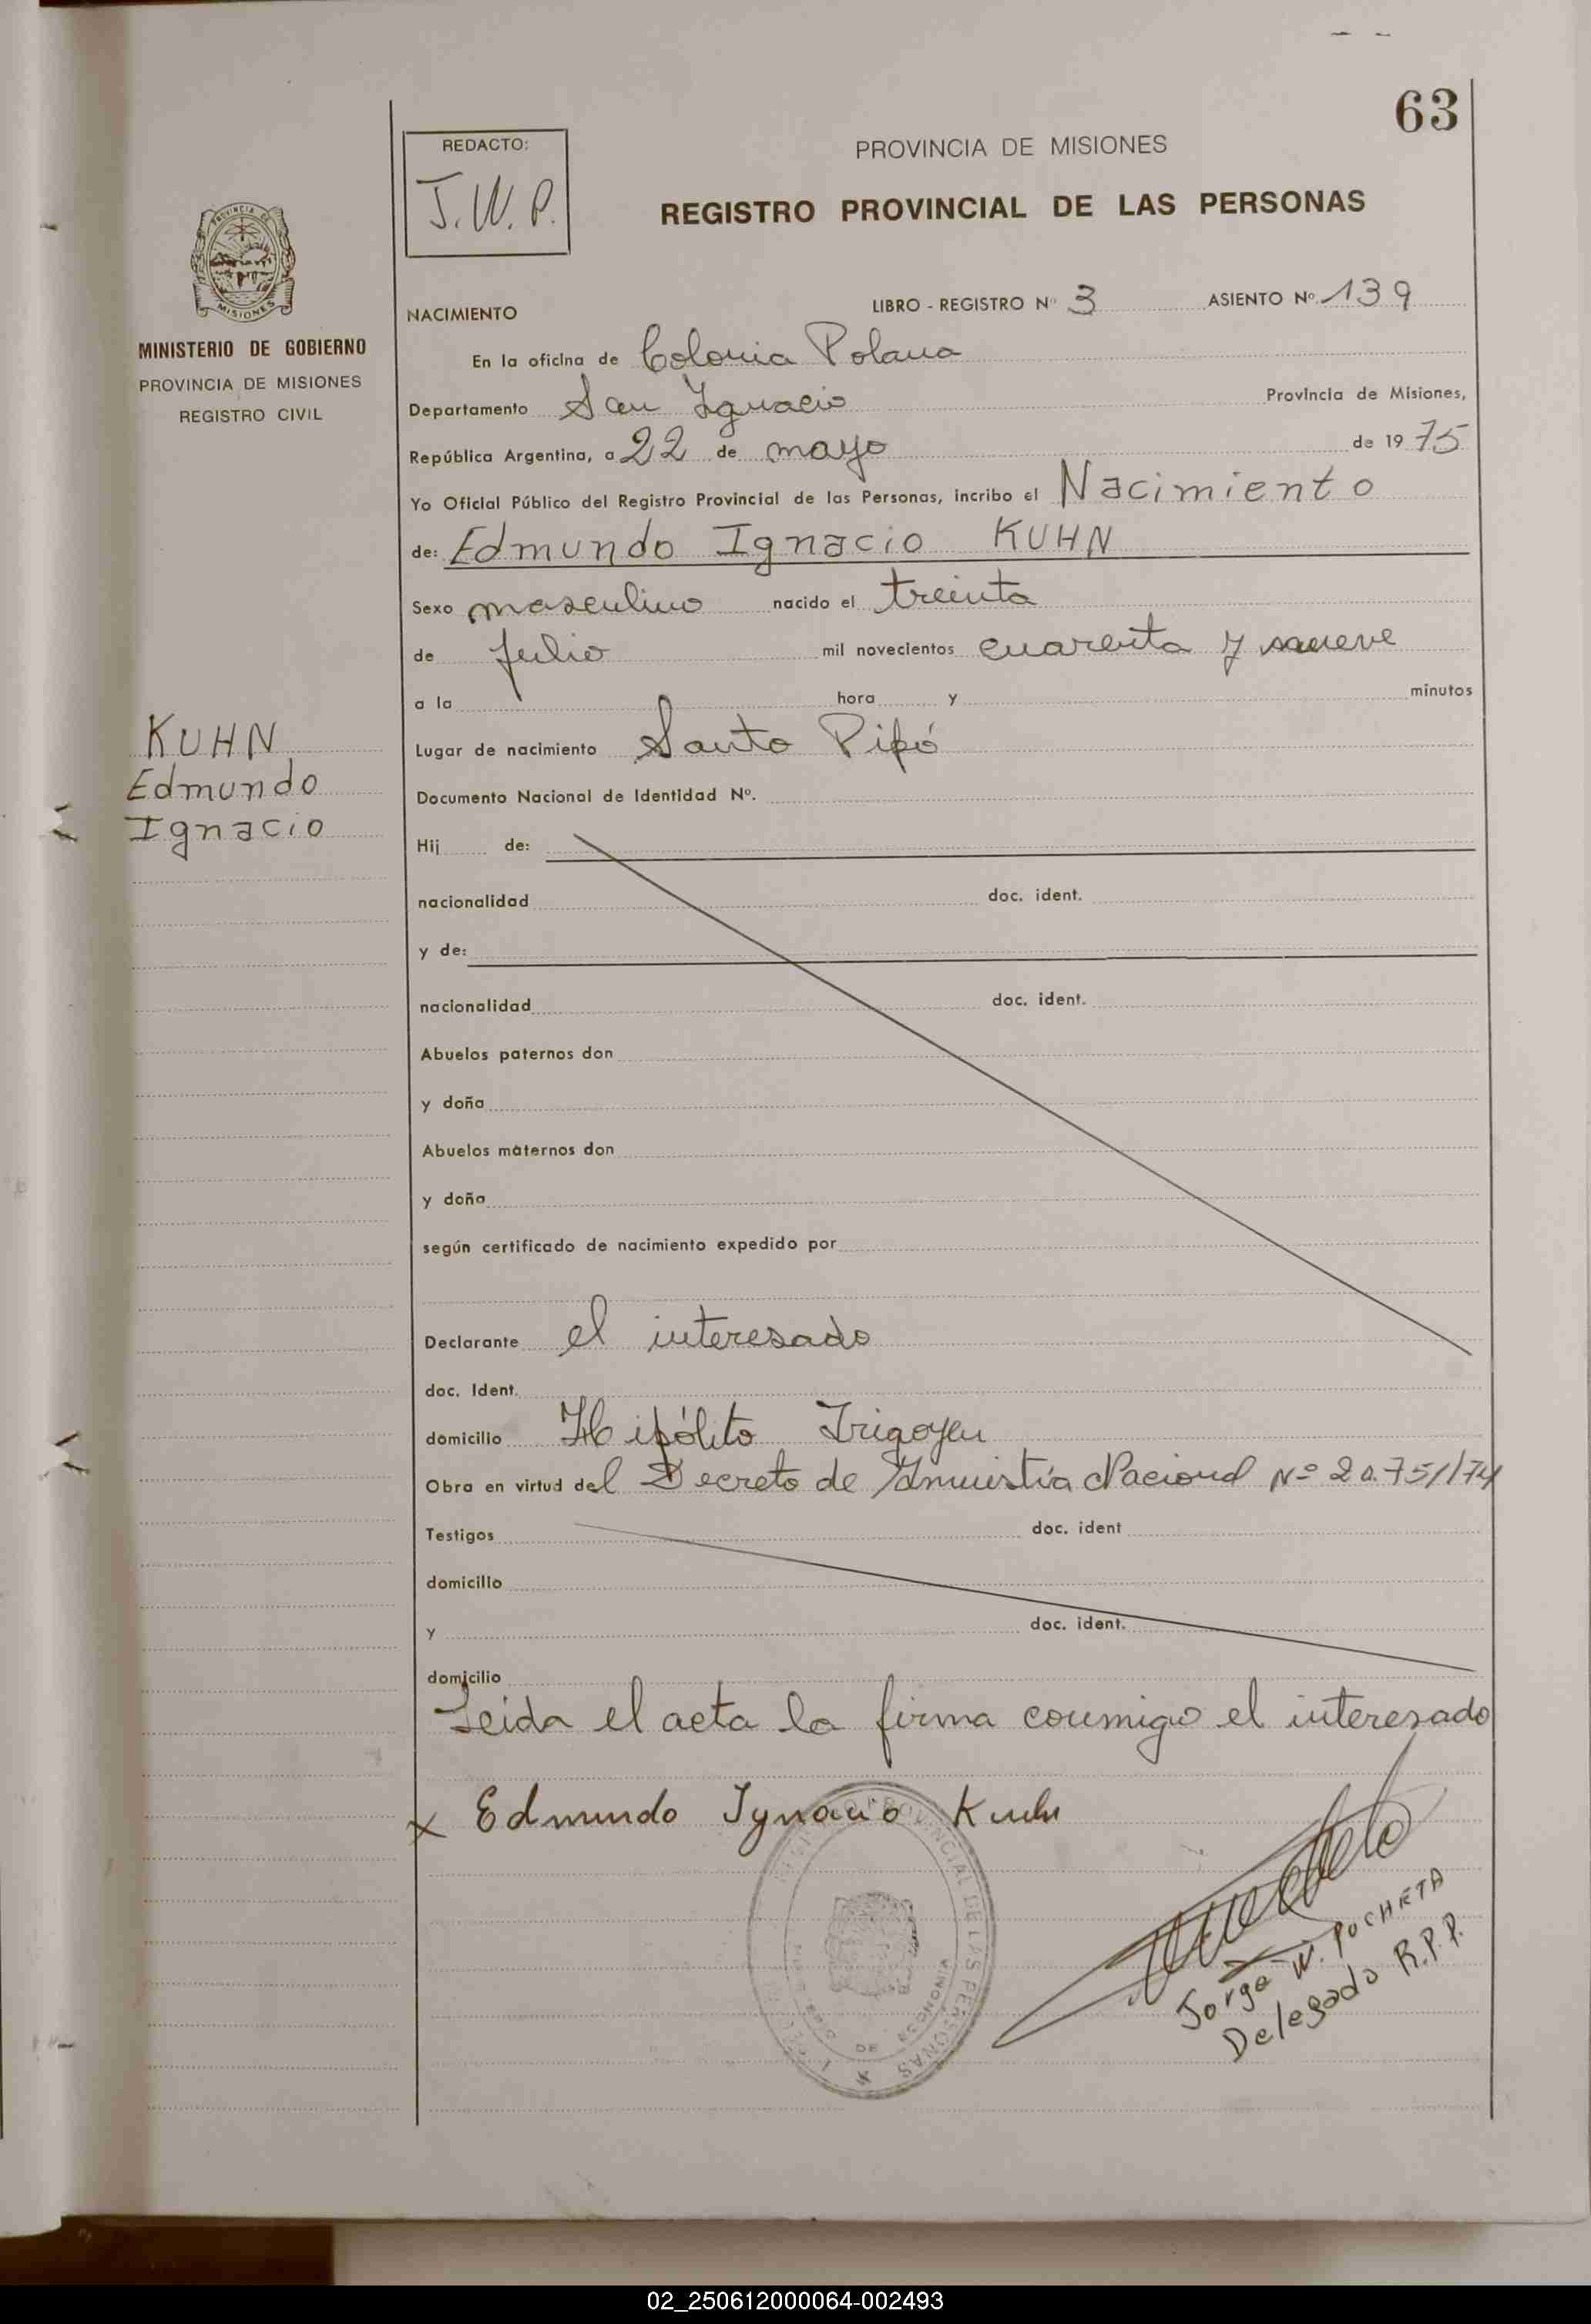 63
REDACTO:
J.W.P.
PROVINCIA DE MISIONES
REGISTRO PROVINCIAL DE LAS PERSONAS
PROVINCIA DE
MISIONES
MINISTERIO DE GOBIERNO
PROVINCIA DE MISIONES
REGISTRO CIVIL
KUHN
Edmundo
Ignacio
NACIMIENTO LIBRO - REGISTRO Nº 3 ASIENTO Nº 139
En la oficina de Colonia Polana
Departamento San Ignacio Provincia de Misiones,
República Argentina, a 22 de mayo de 1975
Yo Oficial Público del Registro Provincial de las Personas, incribo el Nacimiento
de: Edmundo Ignacio KUHN
Sexo masculino nacido el treinta
de julio mil novecientos cuarenta y nueve
a la hora y minutos
Lugar de nacimiento Santo Pipó
Documento Nacional de Identidad Nº.
Hij de:
nacionalidad doc. ident.
y de:
nacionalidad doc. ident.
Abuelos paternos don
y doña
Abuelos maternos don
y doña
según certificado de nacimiento expedido por
Declarante el interesado
doc. Ident.
domicilio Hipólito Irigoyen
Obra en virtud del Decreto de Amnistía Nacional Nº 20.751/74
Testigos doc. ident
domicilio
y doc. ident.
domicilio
Leida el acta la firma conmigo el interesado
x Edmundo Ignacio Kuhn
PROVINCIAL DE LAS PERSONAS
DE
Jorge W. POCHETA
Delegado R.P.P.
02_250612000064-002493